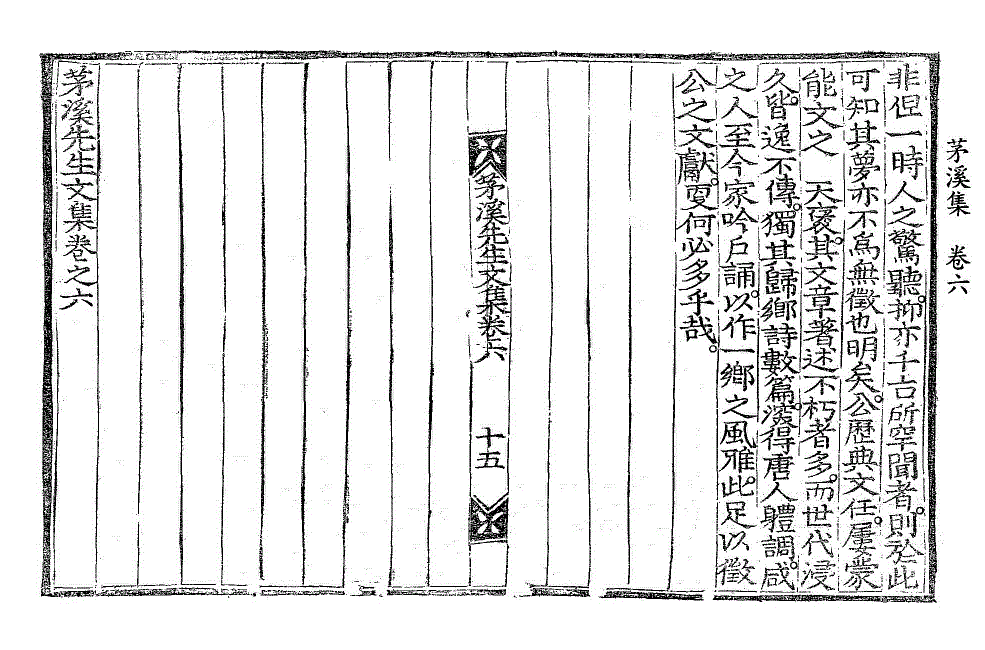 茅溪集　卷六
非但一時人之驚聽。抑亦千古所罕聞者。則於此
可知其夢亦不爲無徵也明矣。公歷典文任。屢蒙
能文之　天褒。其文章著述不朽者多。而世代浸
久。皆逸不傳。獨其歸鄕詩數篇。深得唐人體調。咸
之人至今家吟戶誦。以作一鄕之風雅。此足以徵
公之文獻。更何必多乎哉。
茅溪先生文集卷六
十五
茅溪先生文集卷之六